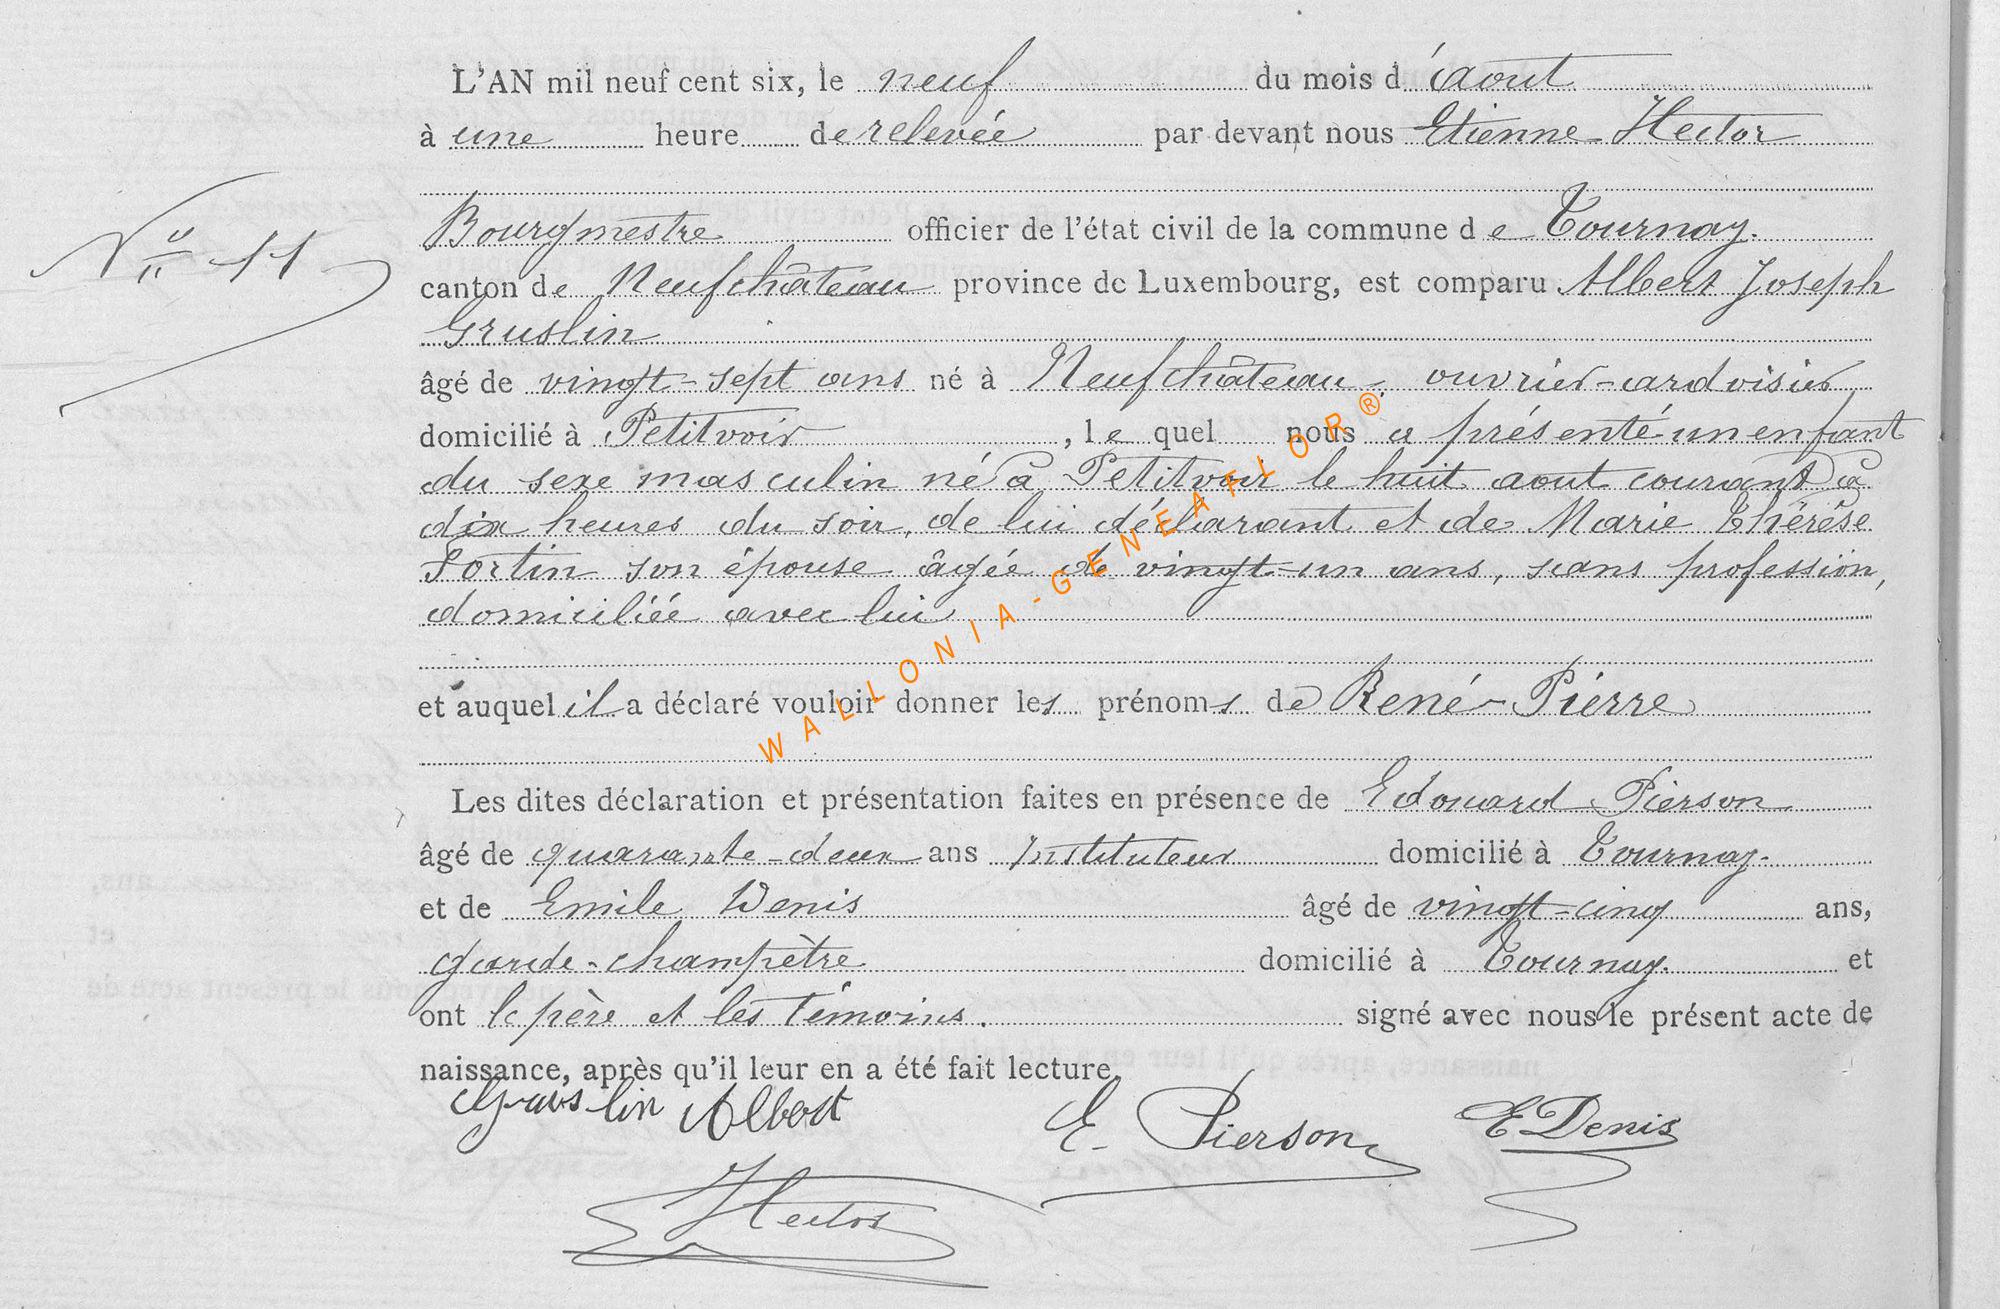 L'AN mil neuf cent six, le neuf du mois d'aout
à une heure de relevée par devant nous Etienne-Hector
Bourgmestre officier de l'état civil de la commune de Tournay.
N° 11
canton de Neufchâteau province de Luxembourg, est comparu Albert Joseph
Gruslin
âgé de vingt-sept ans né à Neufchâteau, ouvrier-ardoisier
domicilié à Petitvoir, lequel nous a présenté un enfant
du sexe masculin né à Petitvoir le huit aout courant à
dix heures du soir, de lui déclarant et de Marie Thérèse
Fortin son épouse âgée de vingt-un ans, sans profession,
domiciliée avec lui
et auquel il a déclaré vouloir donner les prénoms de René-Pierre
Les dites déclaration et présentation faites en présence de Edouard Pierson
âgé de quarante-deux ans Instituteur domicilié à Tournay.
et de Emile Denis âgé de vingt-cinq ans,
garde-champètre domicilié à Tournay. et
ont le père et les témoins. signé avec nous le présent acte de
naissance, après qu'il leur en a été fait lecture.
Gruslin Albert E. Pierson E Denis
Hector
WALLONIA-GENEAFLOR®